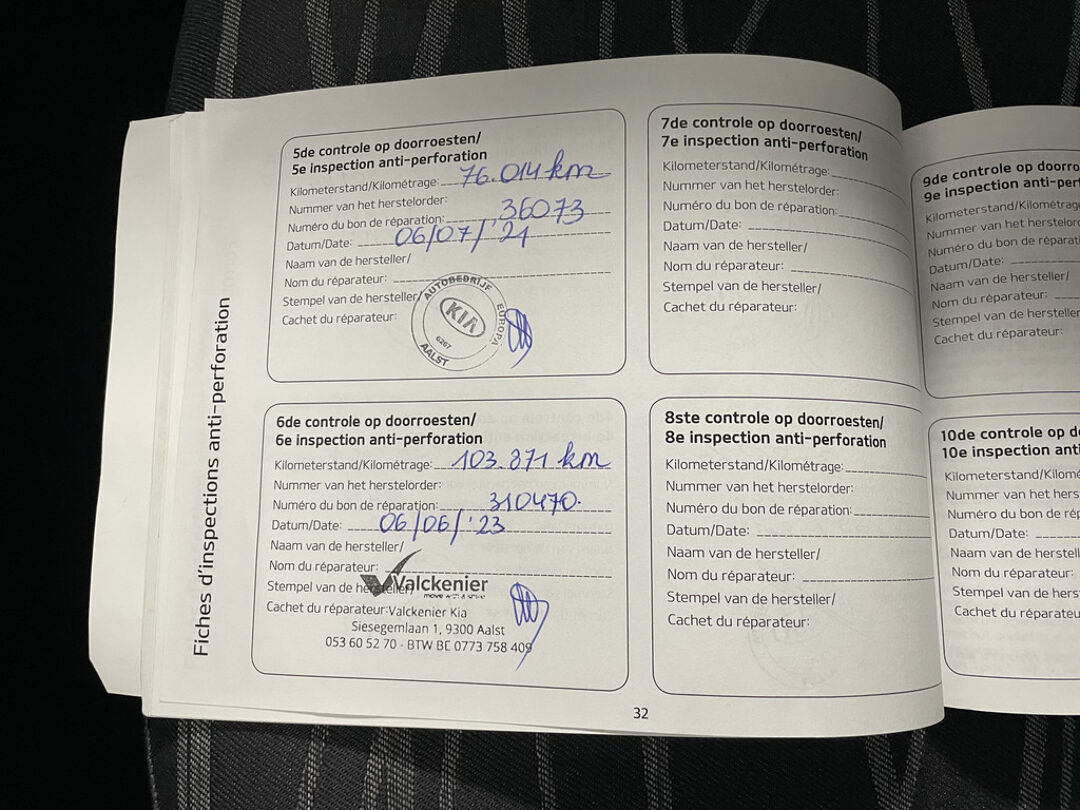 Fiches d'inspections anti-perforation
5de controle op doorroesten/
5e inspection anti-perforation
Kilometerstand/Kilométrage: 76.014 km
Nummer van het herstelorder:
Numéro du bon de réparation: 36073
Datum/Date: 06/07/'21
Naam van de hersteller/
Nom du réparateur:
Stempel van de hersteller/
Cachet du réparateur:
AUTOBEDRIJF
EUROPA
KIA
6267
AALST
6de controle op doorroesten/
6e inspection anti-perforation
Kilometerstand/Kilométrage: 103.871 km
Nummer van het herstelorder:
Numéro du bon de réparation: 310470.
Datum/Date: 06/06/'23
Naam van de hersteller/
Nom du réparateur:
Stempel van de hersteller/
Valckenier
Cachet du réparateur: Valckenier Kia
Siesegemlaan 1, 9300 Aalst
053 60 52 70 - BTW BE 0773 758 409
7de controle op doorroesten/
7e inspection anti-perforation
Kilometerstand/Kilométrage:
Nummer van het herstelorder:
Numéro du bon de réparation:
Datum/Date:
Naam van de hersteller/
Nom du réparateur:
Stempel van de hersteller/
Cachet du réparateur:
8ste controle op doorroesten/
8e inspection anti-perforation
Kilometerstand/Kilométrage:
Nummer van het herstelorder:
Numéro du bon de réparation:
Datum/Date:
Naam van de hersteller/
Nom du réparateur:
Stempel van de hersteller/
Cachet du réparateur:
32
9de controle op doorro
9e inspection anti-per
Kilometerstand/Kilométrag
Nummer van het herstelor
Numéro du bon de réparat
Datum/Date:
Naam van de hersteller/
Nom du réparateur:
Stempel van de hersteller/
Cachet du réparateur:
10de controle op d
10e inspection anti
Kilometerstand/Kilom
Nummer van het hers
Numéro du bon de ré
Datum/Date:
Naam van de herstell
Nom du réparateur:
Stempel van de herst
Cachet du réparateu